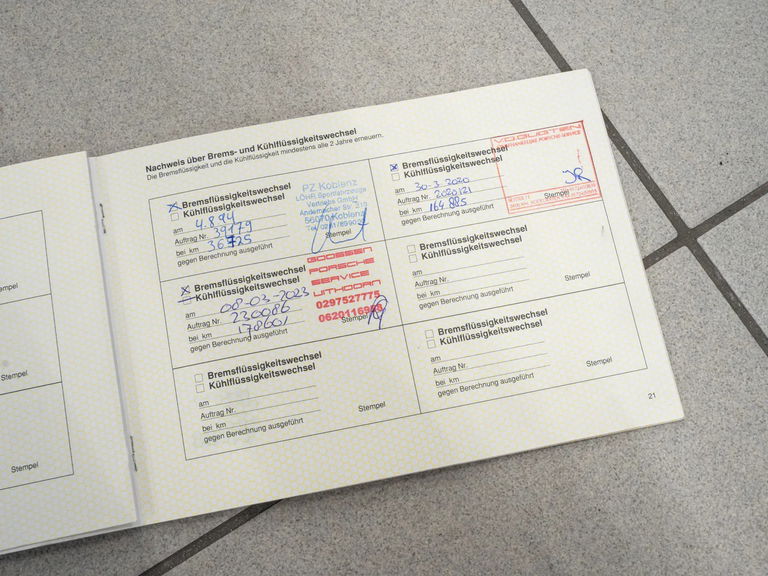 Nachweis über Brems- und Kühlflüssigkeitswechsel
Die Bremsflüssigkeit und die Kühlflüssigkeit mindestens alle 2 Jahre erneuern.
Bremsflüssigkeitswechsel
Kühlflüssigkeitswechsel
am 4.8.94
Auftrag Nr. 39179
bei km 36725
gegen Berechnung ausgeführt
PZ Koblenz
LÖHR Sportfahrzeuge
Vertriebs GmbH
Andernacher Str. 210
56070 Koblenz
Stempel
Bremsflüssigkeitswechsel
Kühlflüssigkeitswechsel
am 30-3-2020
Auftrag Nr. 2020121
bei km 164.885
gegen Berechnung ausgeführt
PORSCHE SERVICE
Stempel
Bremsflüssigkeitswechsel
Kühlflüssigkeitswechsel
am 08-03-2023
Auftrag Nr. 230086
bei km 178601
gegen Berechnung ausgeführt
GOOSSEN
PORSCHE
SERVICE
UITHOORN
0297527775
Stempel
Bremsflüssigkeitswechsel
Kühlflüssigkeitswechsel
am
Auftrag Nr.
bei km
gegen Berechnung ausgeführt
Stempel
Bremsflüssigkeitswechsel
Kühlflüssigkeitswechsel
am
Auftrag Nr.
bei km
gegen Berechnung ausgeführt
Stempel
Bremsflüssigkeitswechsel
Kühlflüssigkeitswechsel
am
Auftrag Nr.
bei km
gegen Berechnung ausgeführt
Stempel
21
Stempel
Stempel